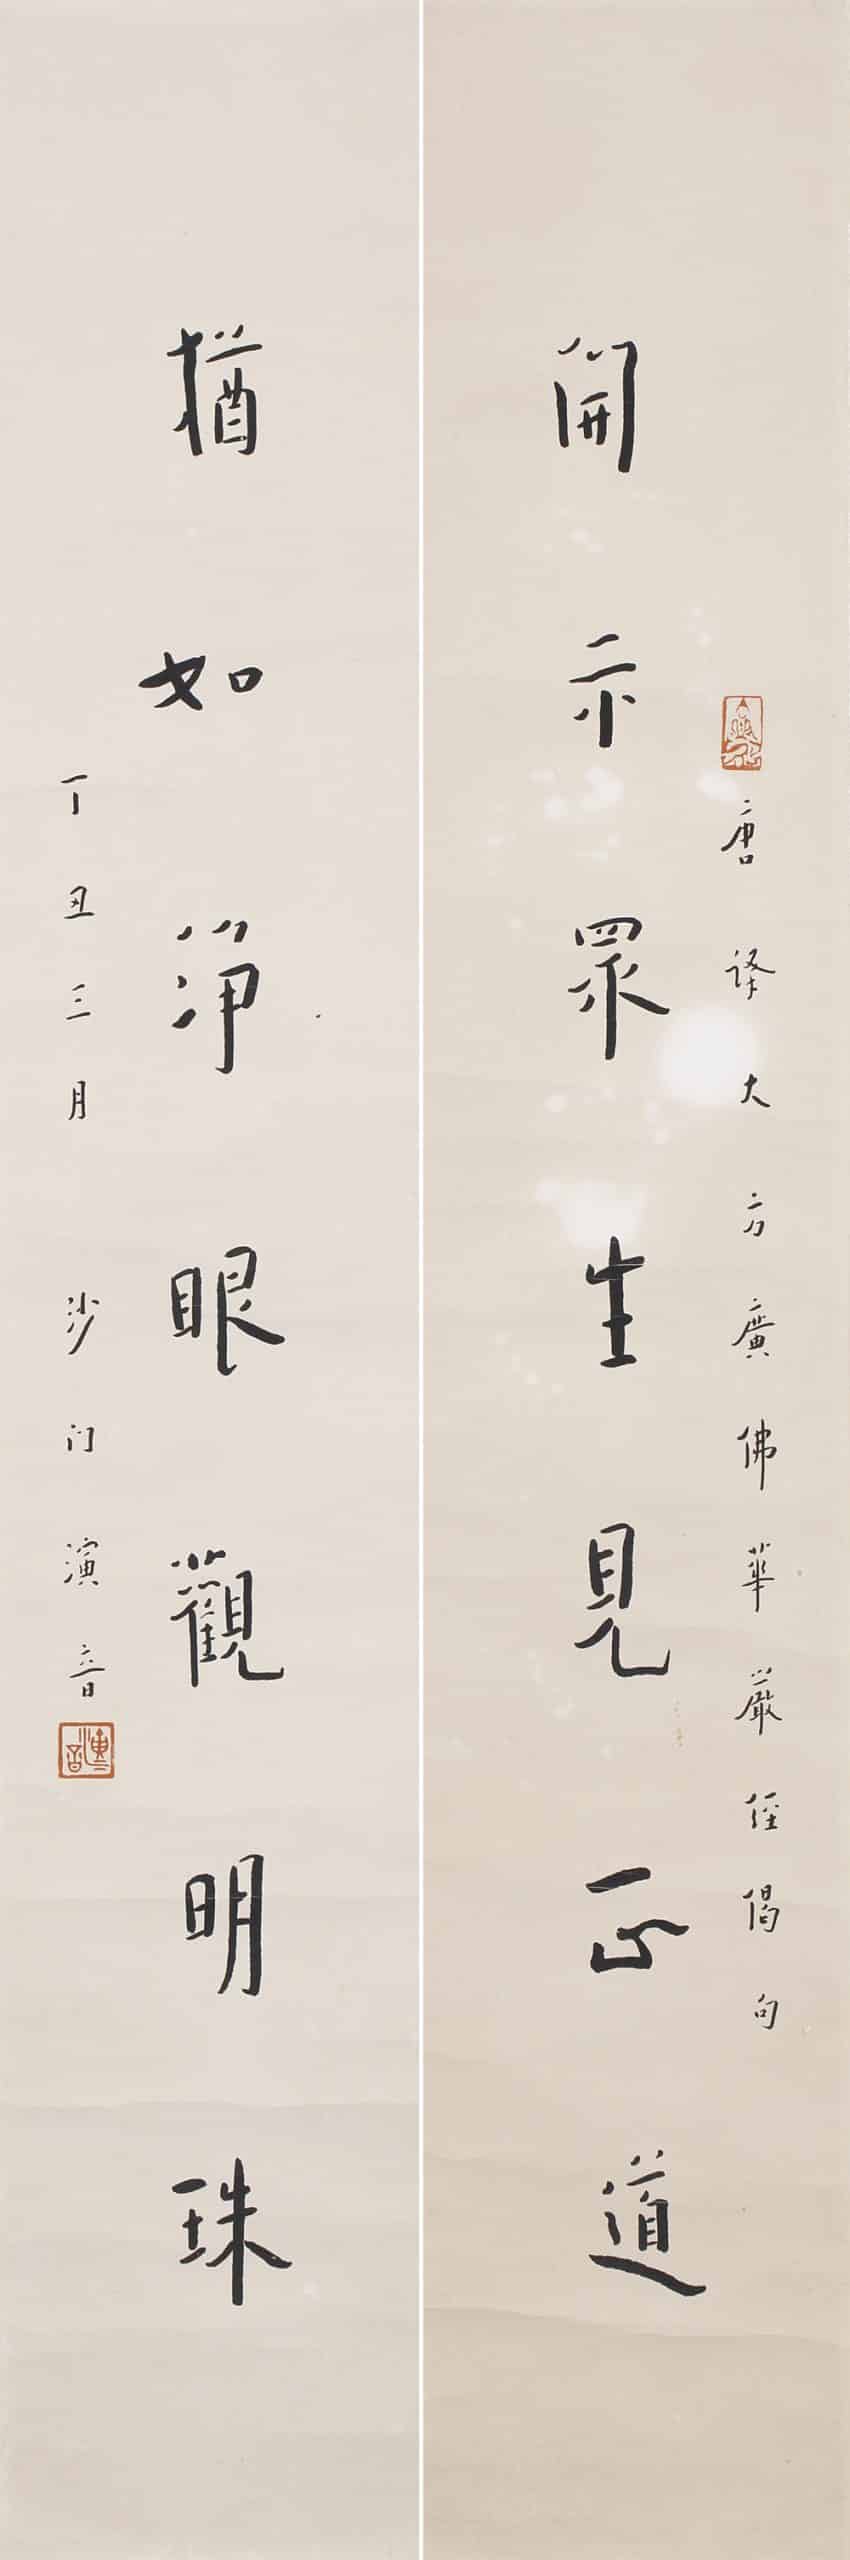 開示眾生見正道
唐譯大方廣佛華嚴經偈句
猶如淨眼觀明珠
丁丑三月 沙门演音
演音